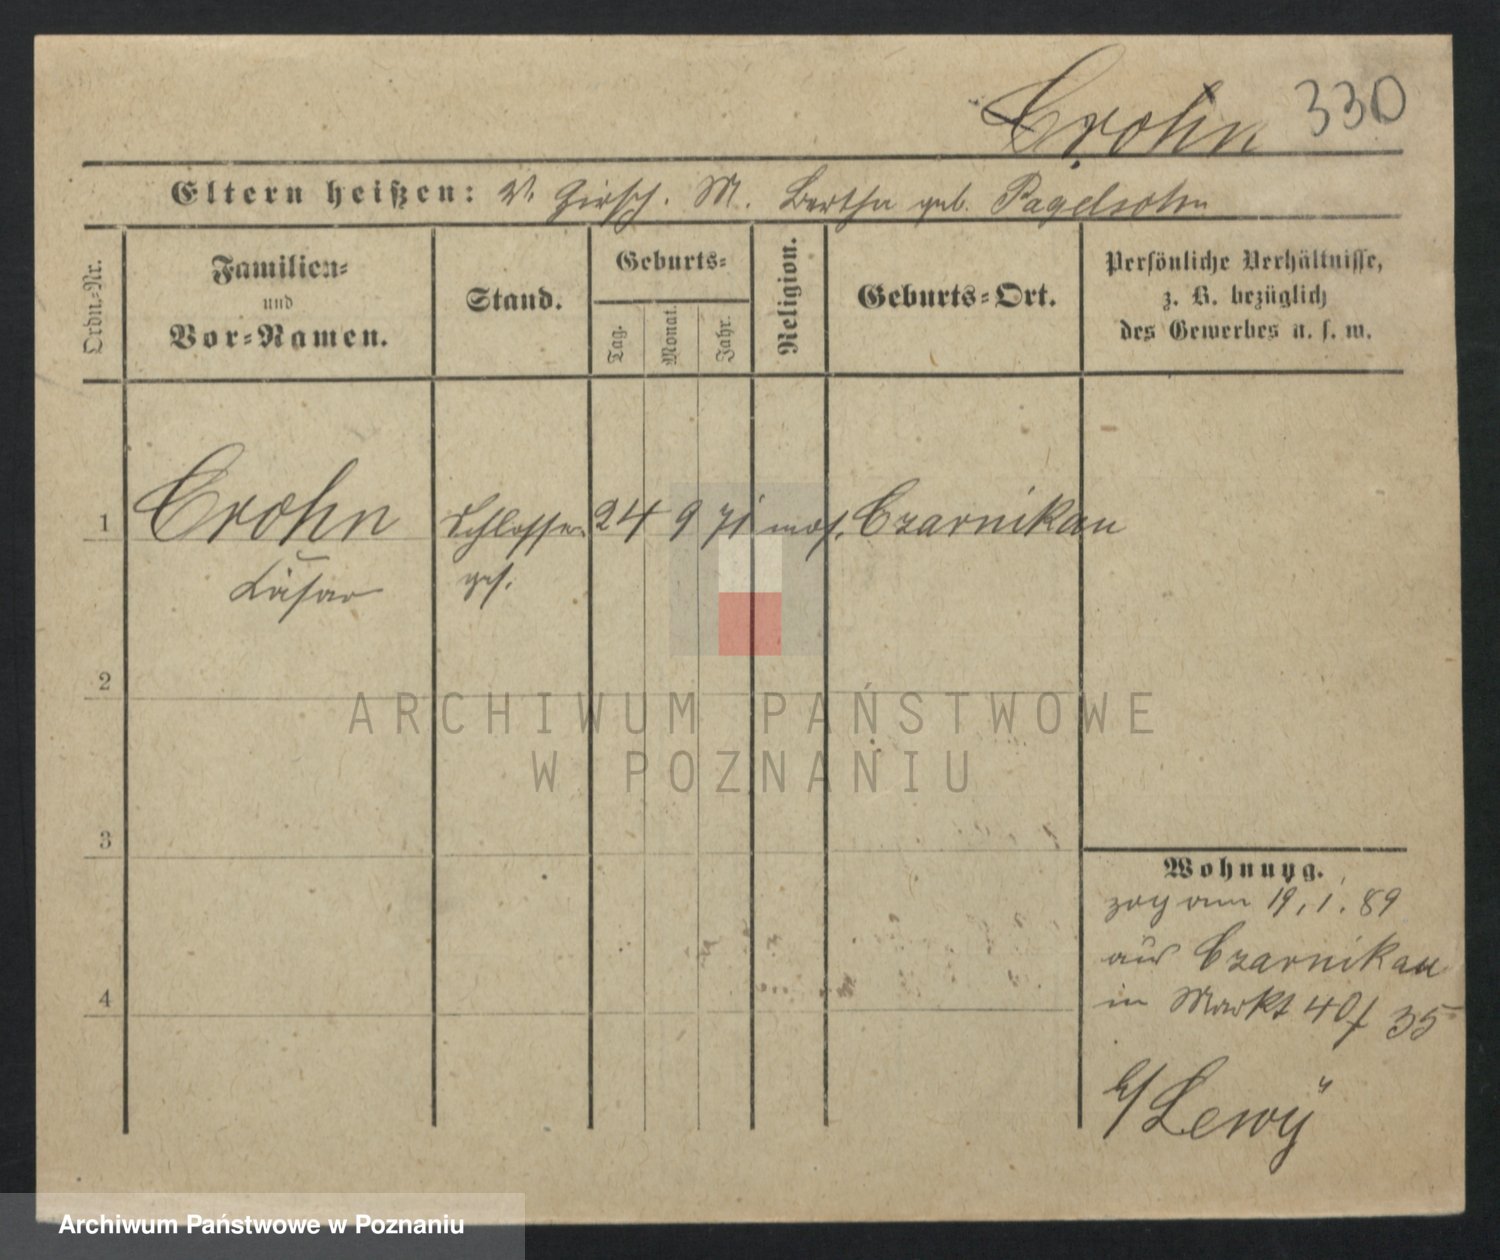 Crohn 330
Eltern heißen: V. Hirsch. M. Bertha geb. Pagelsohn
Ordn.-Nr.
Familien-
und
Vor-Namen.
Stand.
Geburts-
Tag.
Monat.
Jahr.
Religion.
Geburts-Ort.
Persönliche Verhältnisse,
z. B. bezüglich
des Gewerbes u. s. w.
1 Crohn Schlosser 24 9 71 mos. Czarnikau
Cäsar ges.
2
ARCHIWUM PAŃSTWOWE
W POZNANIU
3
Wohnung.
zog am 19. 1. 89
aus Czarnikau
in Markt 40 f 35
4
b/ Lewÿ
Archiwum Państwowe w Poznaniu